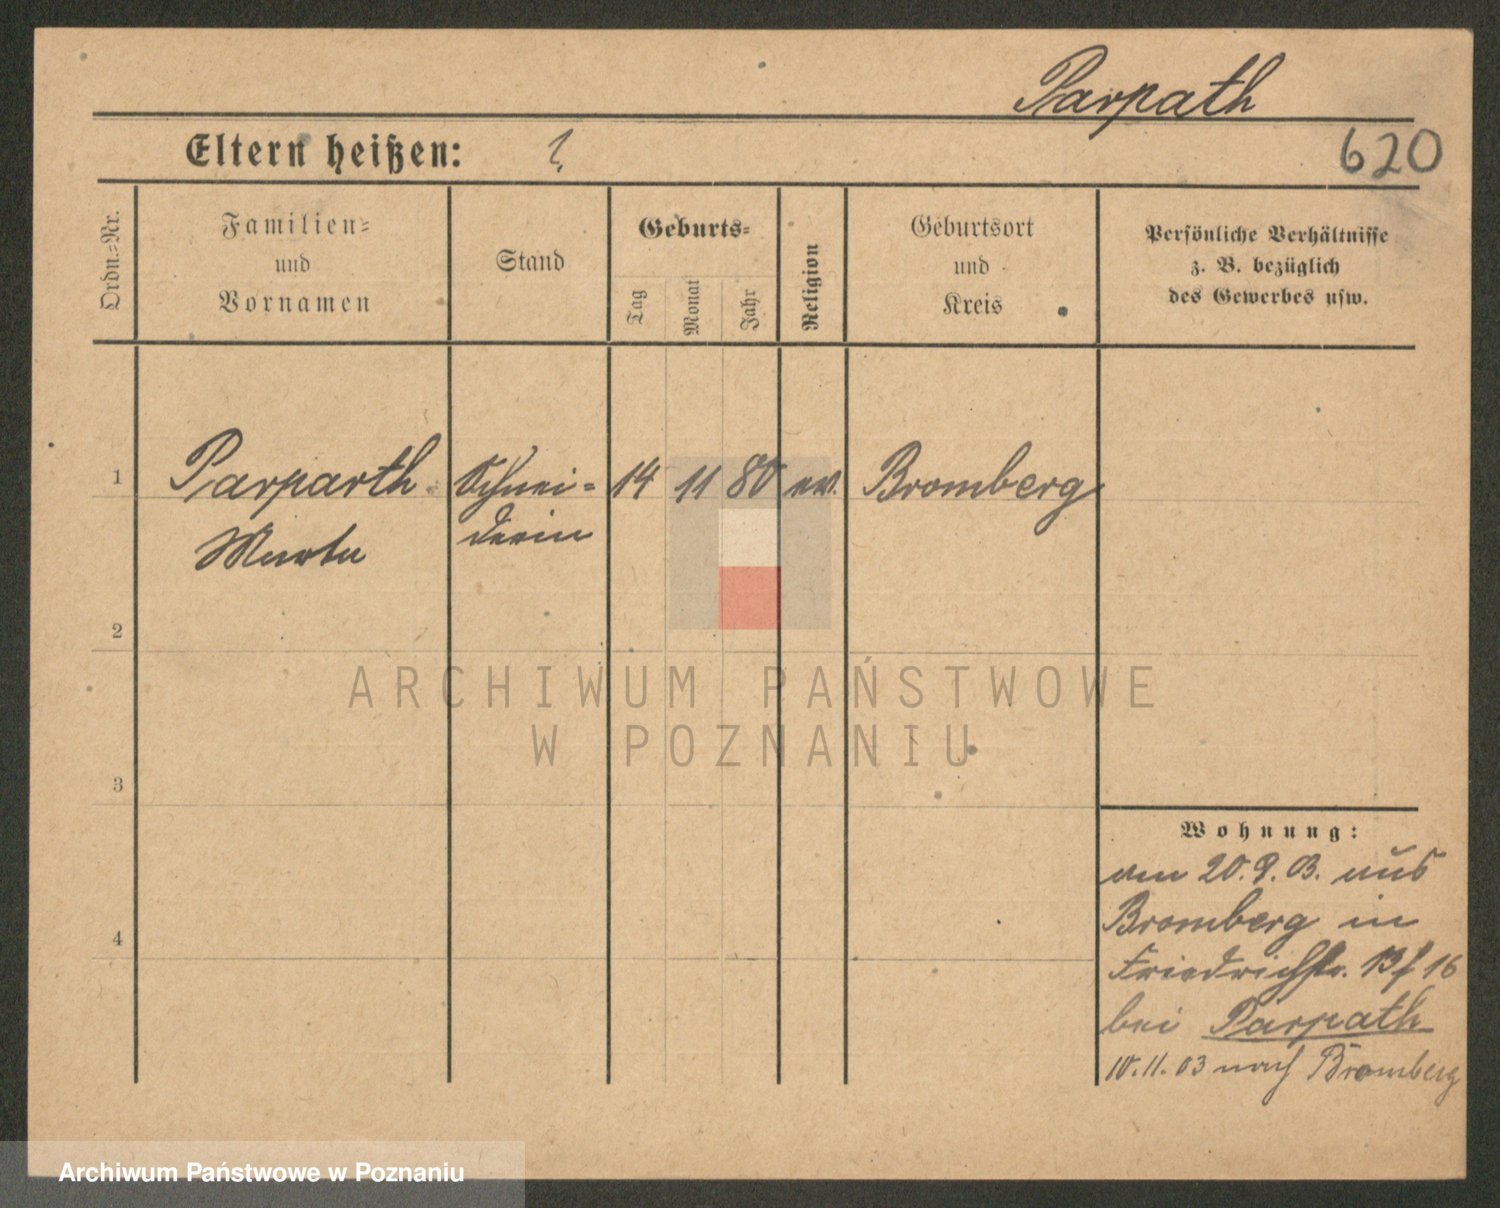 Parpath
620
Eltern heißen: ?
Ordn.=Nr.
Familien=
und
Vornamen
Stand
Geburts=
Tag
Monat
Jahr
Religion
Geburtsort
und
Kreis
Persönliche Verhältnisse
z. B. bezüglich
des Gewerbes usw.
1 Parparth Schnei= 14 11 80 ev. Bromberg
Marta derin
2
3
4
ARCHIWUM PAŃSTWOWE
W POZNANIU
Wohnung:
am 20. 9. 03. aus
Bromberg in
Friedrichstr. 16
bei Parpath
10. 11. 03 nach Bromberg
Archiwum Państwowe w Poznaniu